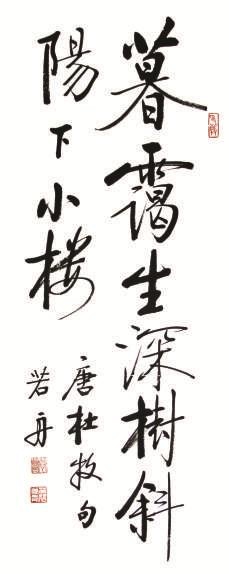 暮霭生深樹斜
陽下小楼
唐杜牧句
若舟